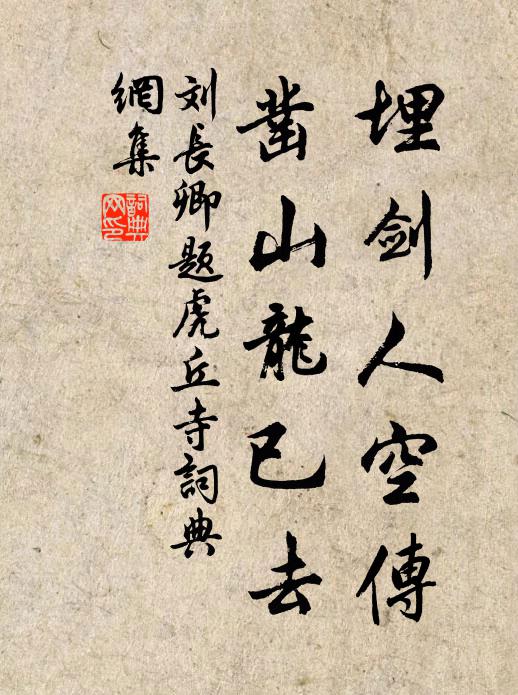 埋剑人空傳
凿山龍已去
刘長卿题虎丘寺詞典
網集
詞典
网印